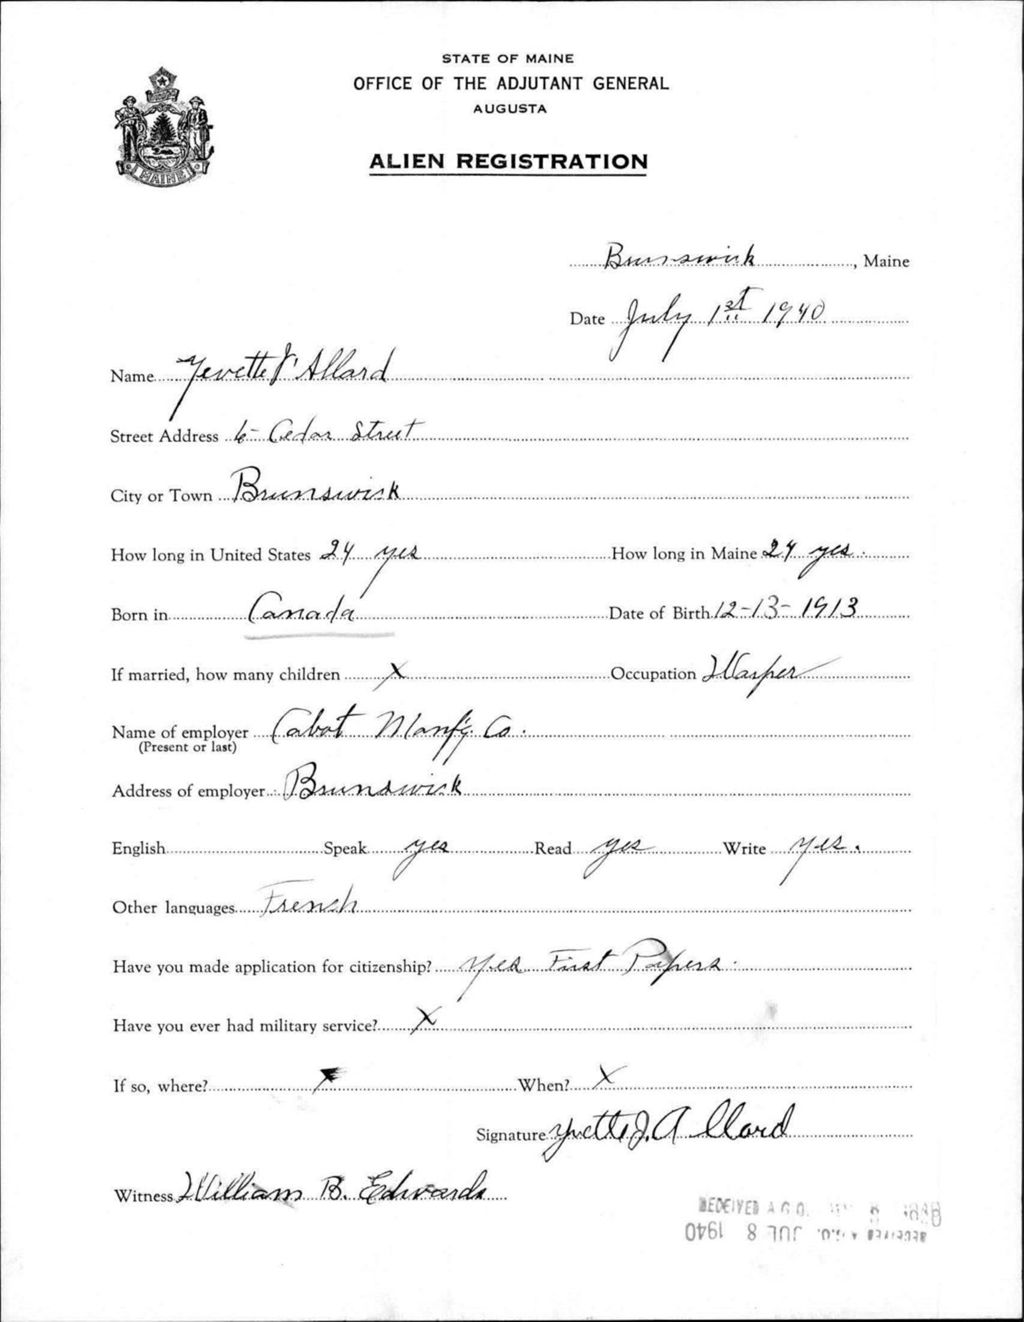 STATE OF MAINE
OFFICE OF THE ADJUTANT GENERAL
AUGUSTA
ALIEN REGISTRATION
MAINE
Brunswick, Maine
Date July 1st 1940
Name Yevette J. Allard
Street Address 6- Cedar Street
City or Town Brunswick
How long in United States 24 yrs How long in Maine 24 yrs.
Born in Canada Date of Birth 12-13-1913
If married, how many children X Occupation Warper
Name of employer Cabot Manf'g. Co.
(Present or last)
Address of employer Brunswick
English Speak yes Read yes Write yes.
Other languages French
Have you made application for citizenship? Yes First Papers.
Have you ever had military service? X
If so, where? X When? X
Signature Yvette J. Allard
Witness William B. Edwards
RECEIVED A.G.O.
RECEIVED A.G.O. JUL 8 1940